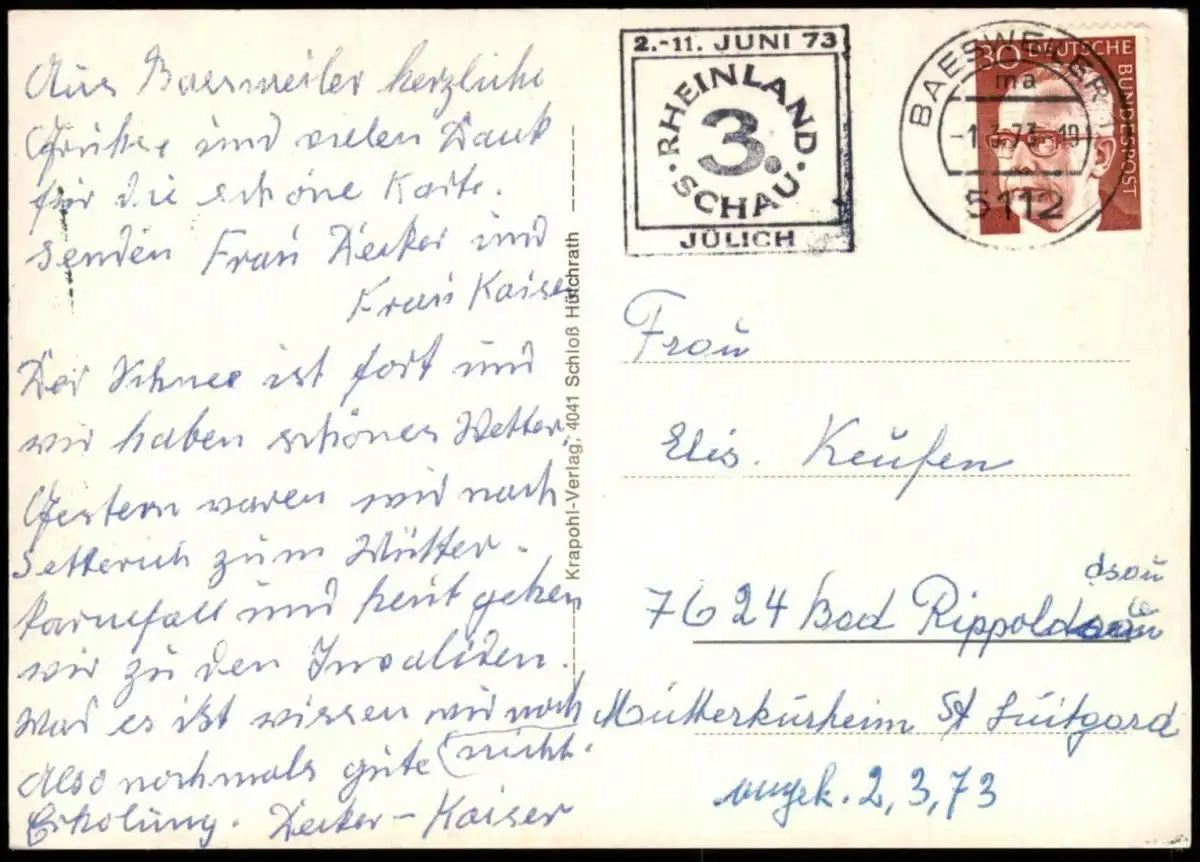 Aus Baesweiler herzliche
Grüße und vielen Dank
für die schöne Karte.
senden Frau Decker und
Frau Kaiser
Der Schnee ist fort und
wir haben schönes Wetter.
Gestern waren wir nach
Setterich zum Mütter-
karnefall und heut gehen
wir zu den Invaliden.
Was es ist wissen wir noch
nicht.
Also nochmals gute
Erholung. Decker - Kaiser
Krapohl-Verlag, 4041 Schloß Hülchrath
2.-11. JUNI 73
RHEINLAND
3.
SCHAU
JÜLICH
BAESWEILER 1
ma
-1.3.73-19
5112
30 DEUTSCHE BUNDESPOST
Frau
Elis. Keufen
dsau
7624 Bad Rippoldsau
Mütterkurheim St Luitgard
angek. 2,3,73